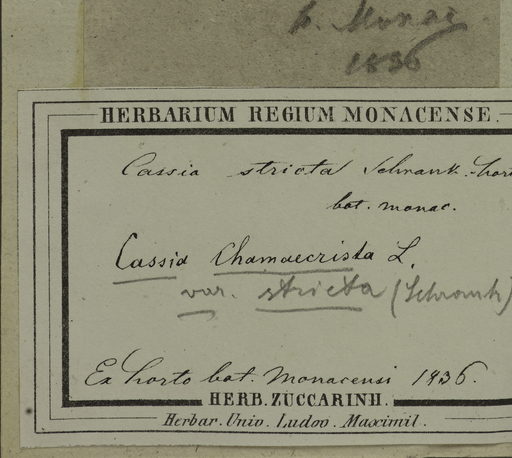 h. Monac
1836
HERBARIUM REGIUM MONACENSE.
Cassia stricta Schrank. hort
bot. monac.
Cassia Chamaecrista L.
var. stricta (Schrank)
Ex horto bot. Monacensi 1836.
HERB. ZUCCARINII.
Herbar. Univ. Ludov. Maximil.